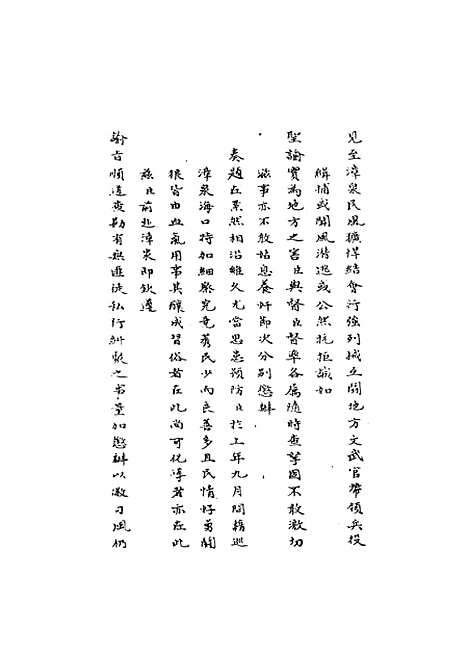 見至漳泉民風獷悍結會行強列械互鬪地方文武官帶領兵役
緝捕或聞風潛逃或公然抗拒誠如
聖諭實為地方之害臣與督臣督率各屬隨時查拏固不敢激切
滋事亦不敢姑息養奸節次分別懲辦
奏題在案然相沿雖久尤當思患預防臣於上年九月間藉巡
漳泉海口時加細察究竟莠民少而良善多且民情好勇鬪
狠皆由血氣用事其釀成習俗者在此尚可化導者亦在此
茲臣前赴漳泉即欽遵
諭旨順道查勘有無匪徒私行糾歛之事量加懲辦以儆刁風仍